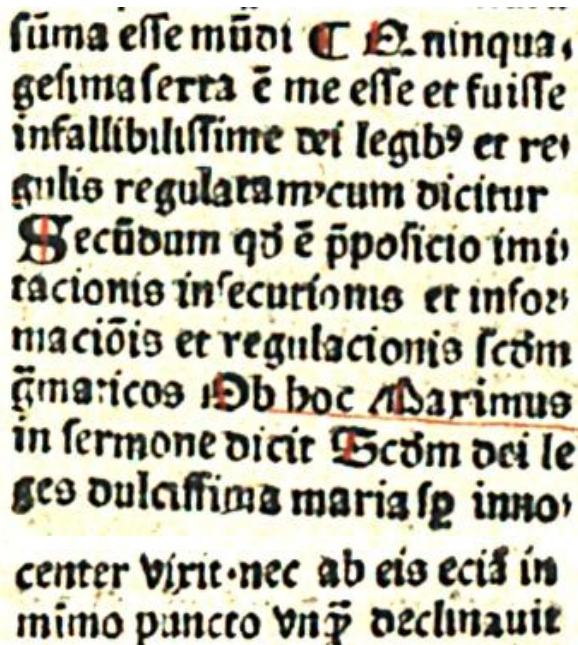 sūma esse mūdi ¶ Quinqua⸗
gesima sexta ē me esse et fuisse
infallibilissime dei legibꝰ et re⸗
gulis regulatam cum dicitur
Secūdum qđ ē p̄posicio imi⸗
tacionis insecutionis et infor⸗
maciōis et regulacionis scđm
g̃maticos Ob hoc Maximus
in sermone dicit Scđm dei le
ges dulcissima maria sꝑ inno⸗
center vixit·nec ab eis eciā in
mimo puncto vnqꝫ̃ declinauit